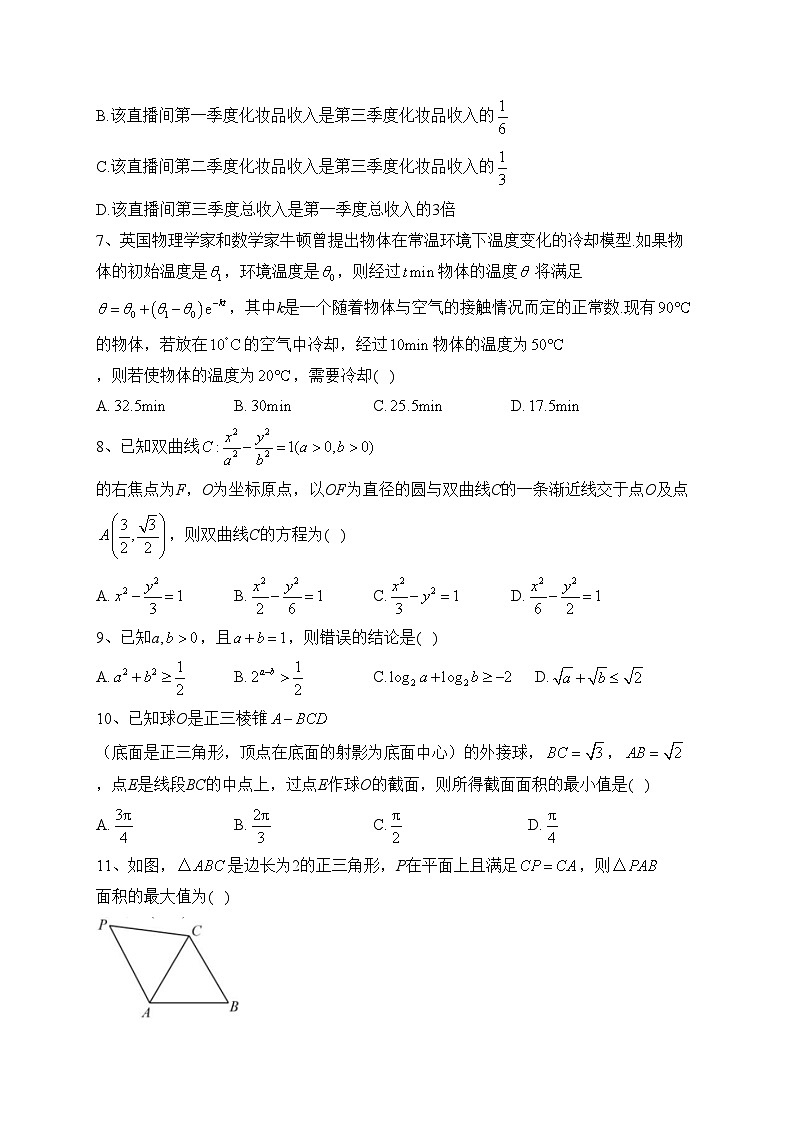 B.该直播间第一季度化妆品收入是第三季度化妆品收入的 1/6
C.该直播间第二季度化妆品收入是第三季度化妆品收入的 1/3
D.该直播间第三季度总收入是第一季度总收入的3倍
7、英国物理学家和数学家牛顿曾提出物体在常温环境下温度变化的冷却模型.如果物
体的初始温度是θ₁，环境温度是θ₀，则经过t min物体的温度θ 将满足
θ=θ₀+(θ₁−θ₀)e^{−kt}，其中k是一个随着物体与空气的接触情况而定的正常数.现有90°C
的物体，若放在10°C的空气中冷却，经过10min物体的温度为50°C
，则若使物体的温度为20°C，需要冷却( )
A. 32.5min B. 30min C. 25.5min D. 17.5min
8、已知双曲线C:x²/a²−y²/b²=1(a>0,b>0)
的右焦点为F，O为坐标原点，以OF为直径的圆与双曲线C的一条渐近线交于点O及点
A(3/2,√3/2)，则双曲线C的方程为( )
A. x²−y²/3=1 B. x²/2−y²/6=1 C. x²/3−y²=1 D. x²/6−y²/2=1
9、已知a,b>0，且a+b=1，则错误的结论是( )
A. a²+b²≥1/2 B. 2^{a−b}>1/2 C.log₂a+log₂b≥−2 D. √a+√b≤√2
10、已知球O是正三棱锥A−BCD
（底面是正三角形，顶点在底面的射影为底面中心）的外接球，BC=√3，AB=√2
，点E是线段BC的中点上，过点E作球O的截面，则所得截面面积的最小值是( )
A. 3π/4 B. 2π/3 C. π/2 D. π/4
11、如图，△ABC是边长为2的正三角形，P在平面上且满足CP=CA，则△PAB
面积的最大值为( )
P
C
A
B